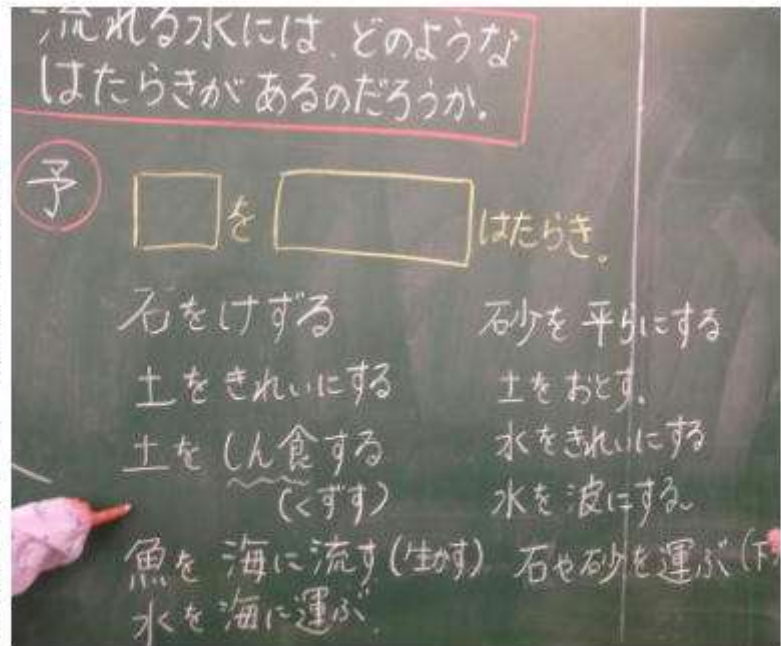 流れる水には、どのような
はたらきがあるのだろうか。
予
を はたらき。
石をけずる
土をきれいにする
土をしん食する
(くずす)
魚を海に流す(生かす)
水を海に運ぶ
砂を平らにする
土をおとす。
水をきれいにする
水を波にする。
石や砂を運ぶ(下